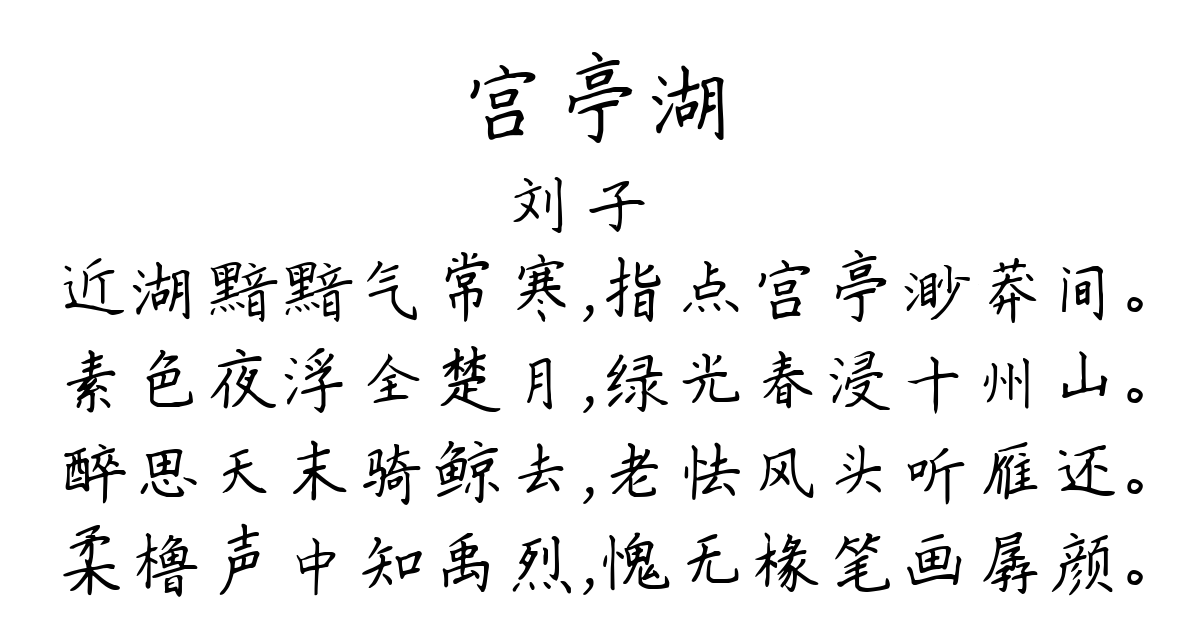 宫亭湖
刘子
近湖黯黯气常寒,指点宫亭渺莽间。
素色夜浮全楚月,绿光春浸十州山。
醉思天末骑鲸去,老怯风头听雁还。
柔橹声中知禹烈,愧无椽笔画孱颜。